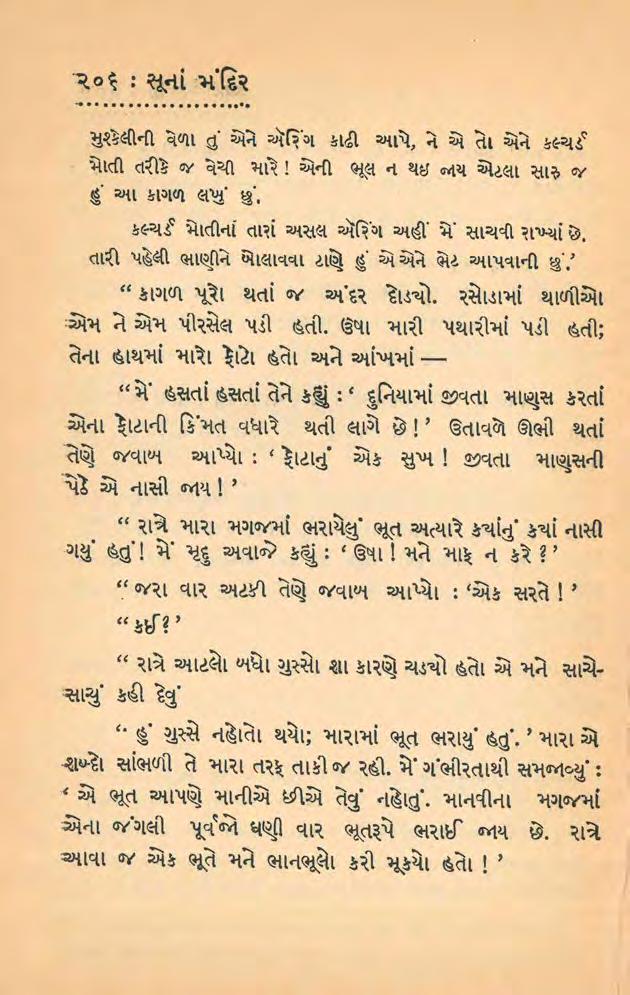 ૨૦૬ : સૂનાં મંદિર
મુશ્કેલીની વેળા તું એને ઍરિંગ કાઢી આપે, ને એ તો એને કલ્ચર્ડ
મોતી તરીકે જ વેચી મારે ! એની ભૂલ ન થઇ જાય એટલા સારુ જ
હું આ કાગળ લખું છું.
કલ્ચર્ડ મોતીનાં તારાં અસલ ઍરિંગ અહીં મેં સાચવી રાખ્યાં છે.
તારી પહેલી ભાણીને બોલાવવા ટાણે હું એ એને ભેટ આપવાની છું.’
“ કાગળ પૂરો થતાં જ અંદર દોડ્યો. રસોડામાં થાળીઓ
એમ ને એમ પીરસેલ પડી હતી. ઉષા મારી પથારીમાં પડી હતી;
તેના હાથમાં મારો ફોટો હતો અને આંખમાં —
“ મેં હસતાં હસતાં તેને કહ્યું : ‘ દુનિયામાં જીવતા માણસ કરતાં
એના ફોટાની કિંમત વધારે થતી લાગે છે ! ’ ઉતાવળે ઊભી થતાં
તેણે જવાબ આપ્યો : ‘ ફોટાનું એક સુખ ! જીવતા માણસની
પેઠે એ નાસી જાય ! ’
“ રાત્રે મારા મગજમાં ભરાયેલું ભૂત અત્યારે ક્યાંનું ક્યાં નાસી
ગયું હતું ! મેં મૃદુ અવાજે કહ્યું : ‘ ઉષા ! મને માફ ન કરે ? ’
“ જરા વાર અટકી તેણે જવાબ આપ્યો : ‘એક સરતે ! ’
“ કઈ ? ’
“ રાત્રે આટલો બધો ગુસ્સો શા કારણે ચડ્યો હતો એ મને સાચે-
સાચું કહી દેવું
“ હું ગુસ્સે નહોતો થયો; મારામાં ભૂત ભરાયું હતું. ’ મારા એ
શબ્દો સાંભળી તે મારા તરફ તાકી જ રહી. મેં ગંભીરતાથી સમજાવ્યું :
‘ એ ભૂત આપણે માનીએ છીએ તેવું નહોતું. માનવીના મગજમાં
એના જંગલી પૂર્વજો ઘણી વાર ભૂતરૂપે ભરાઈ જાય છે. રાત્રે
આવા જ એક ભૂતે મને ભાનભૂલો કરી મૂક્યો હતો ! ’